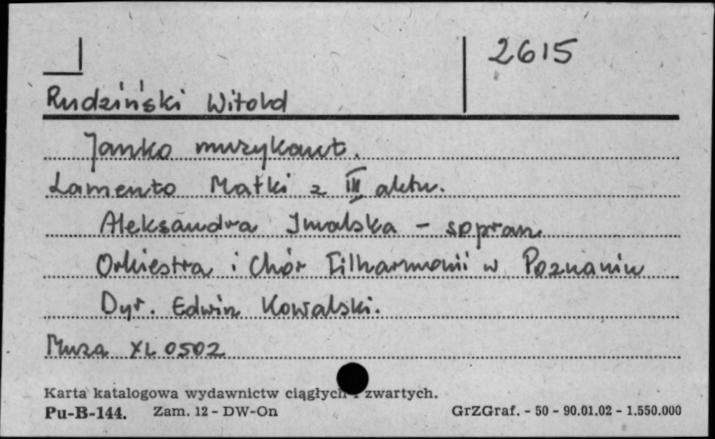 2615
Rudziński Witold
Janko muzykant.
Lamento Matki z III aktu.
Aleksandra Imalska - sopran
Orkiestra i Chór Filharmonii w Poznaniu
Dyr. Edwin Kowalski.
Muza XL 0502
Karta katalogowa wydawnictw ciągłych i zwartych.
Pu-B-144. Zam. 12 - DW-On GrZGraf. - 50 - 90.01.02 - 1.550.000